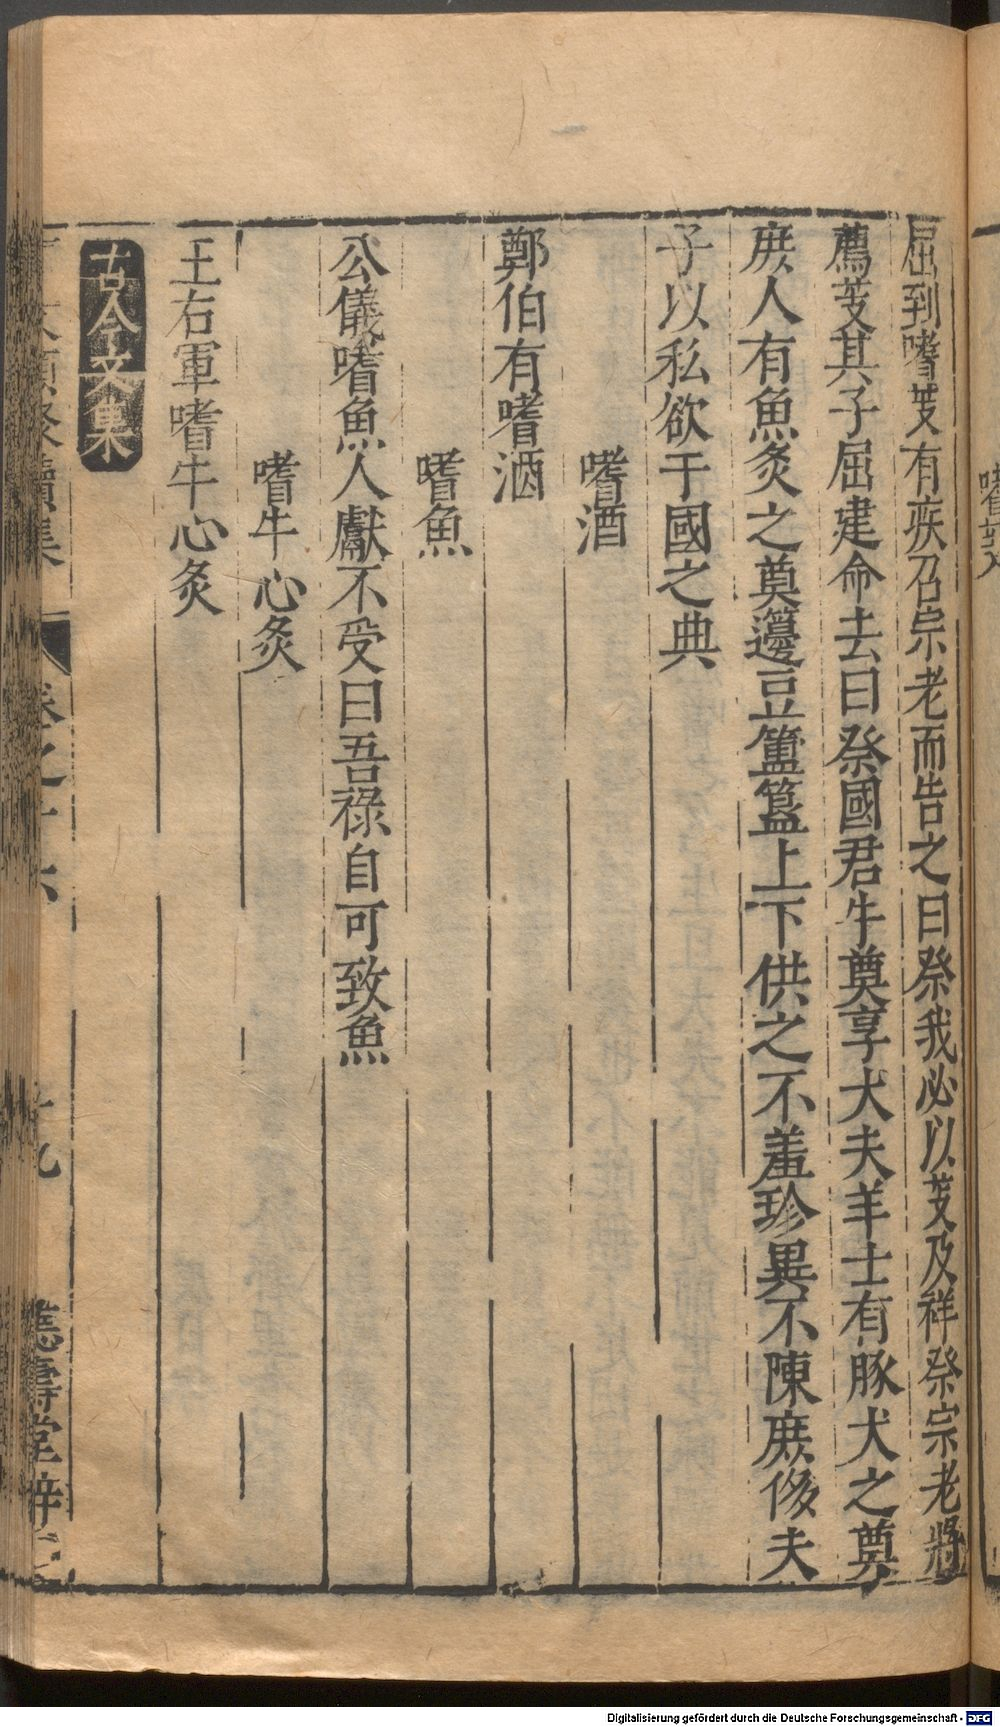 屈到嗜芰有疾召宗老而告之曰祭我必以芰及祥祭宗老將
薦芰其子屈建命去曰祭國君牛奠享大夫羊士有豚犬之奠
庶人有魚炙之奠籩豆簠簋上下供之不羞珍異不陳庶侈夫
子以私欲于國之典
嗜酒
鄭伯有嗜酒
嗜魚
公儀嗜魚人獻不受曰吾祿自可致魚
嗜牛心炙
王右軍嗜牛心炙
古今文集
Digitalisierung gefördert durch die Deutsche Forschungsgemeinschaft - DFG